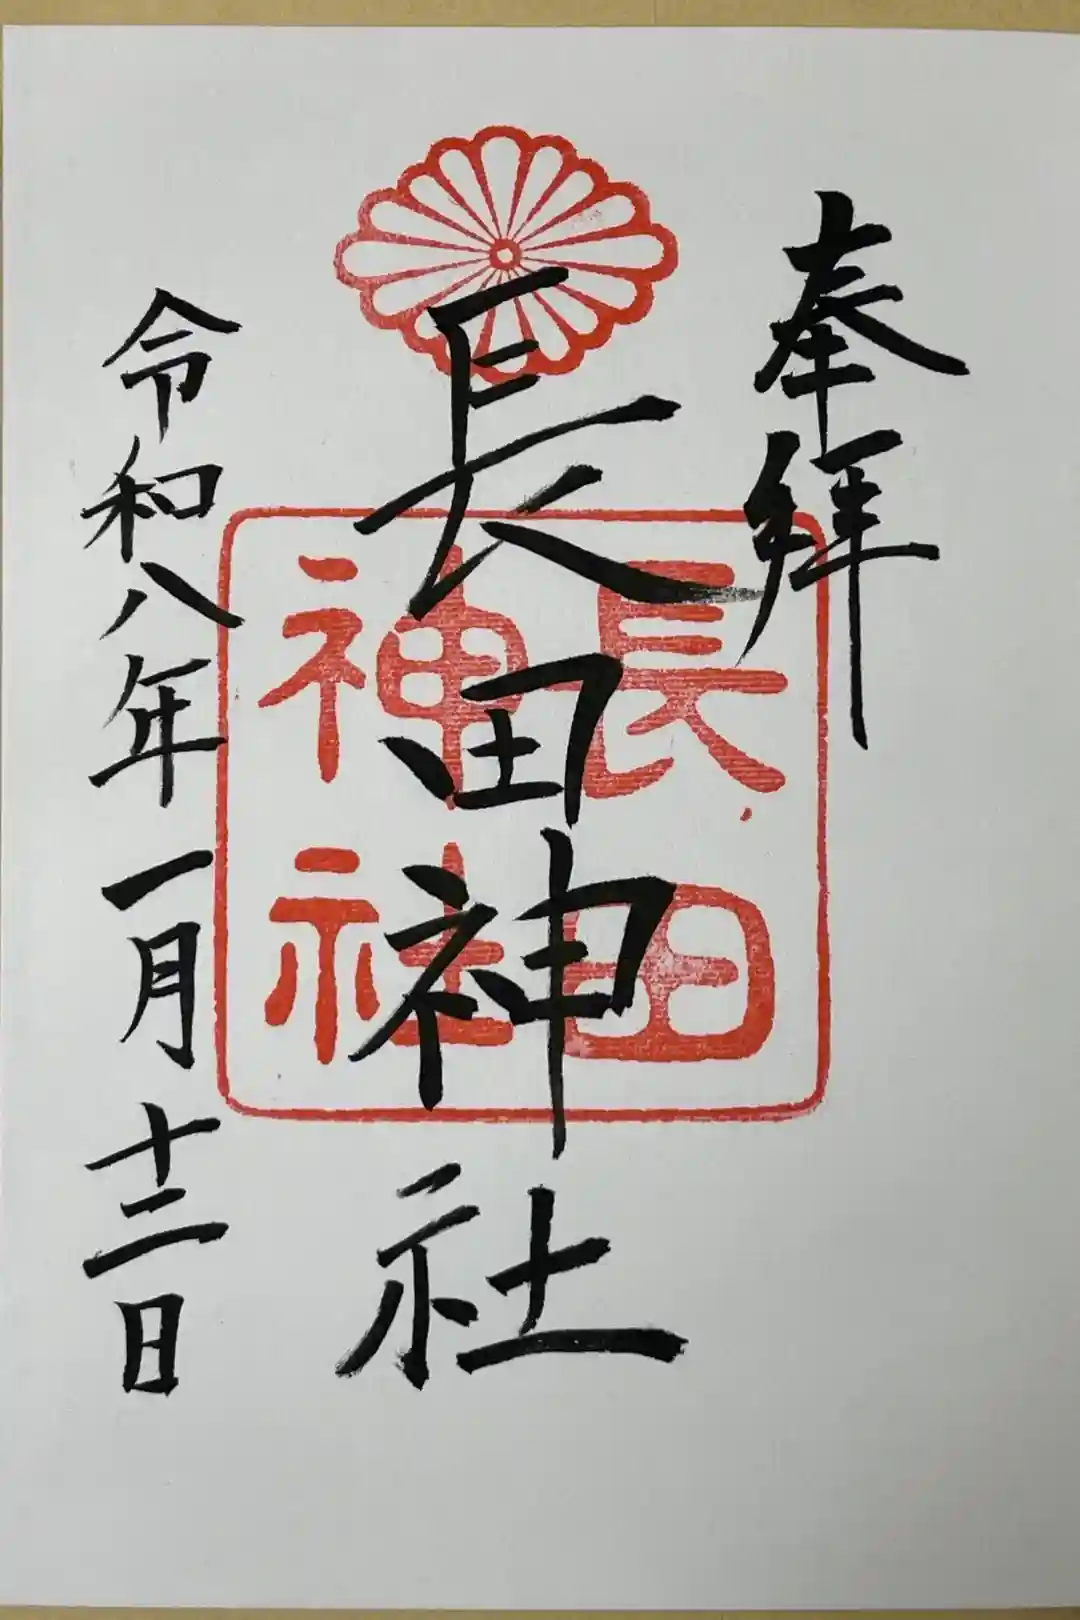 奉拝
長田神社
令和八年一月十二日
長田
神社